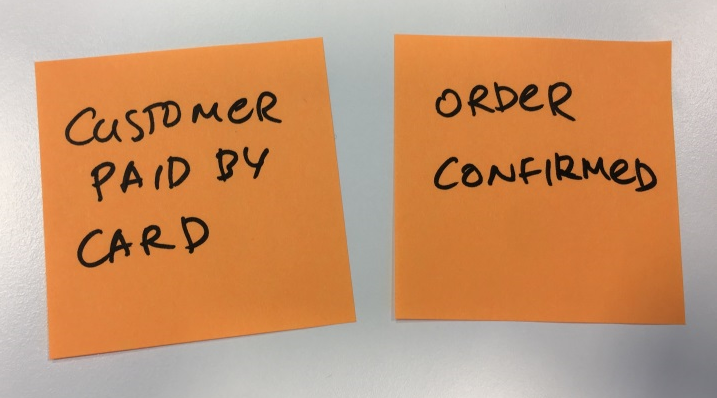 CUSTOMER
PAID BY
CARD
ORDER
CONFIRMED